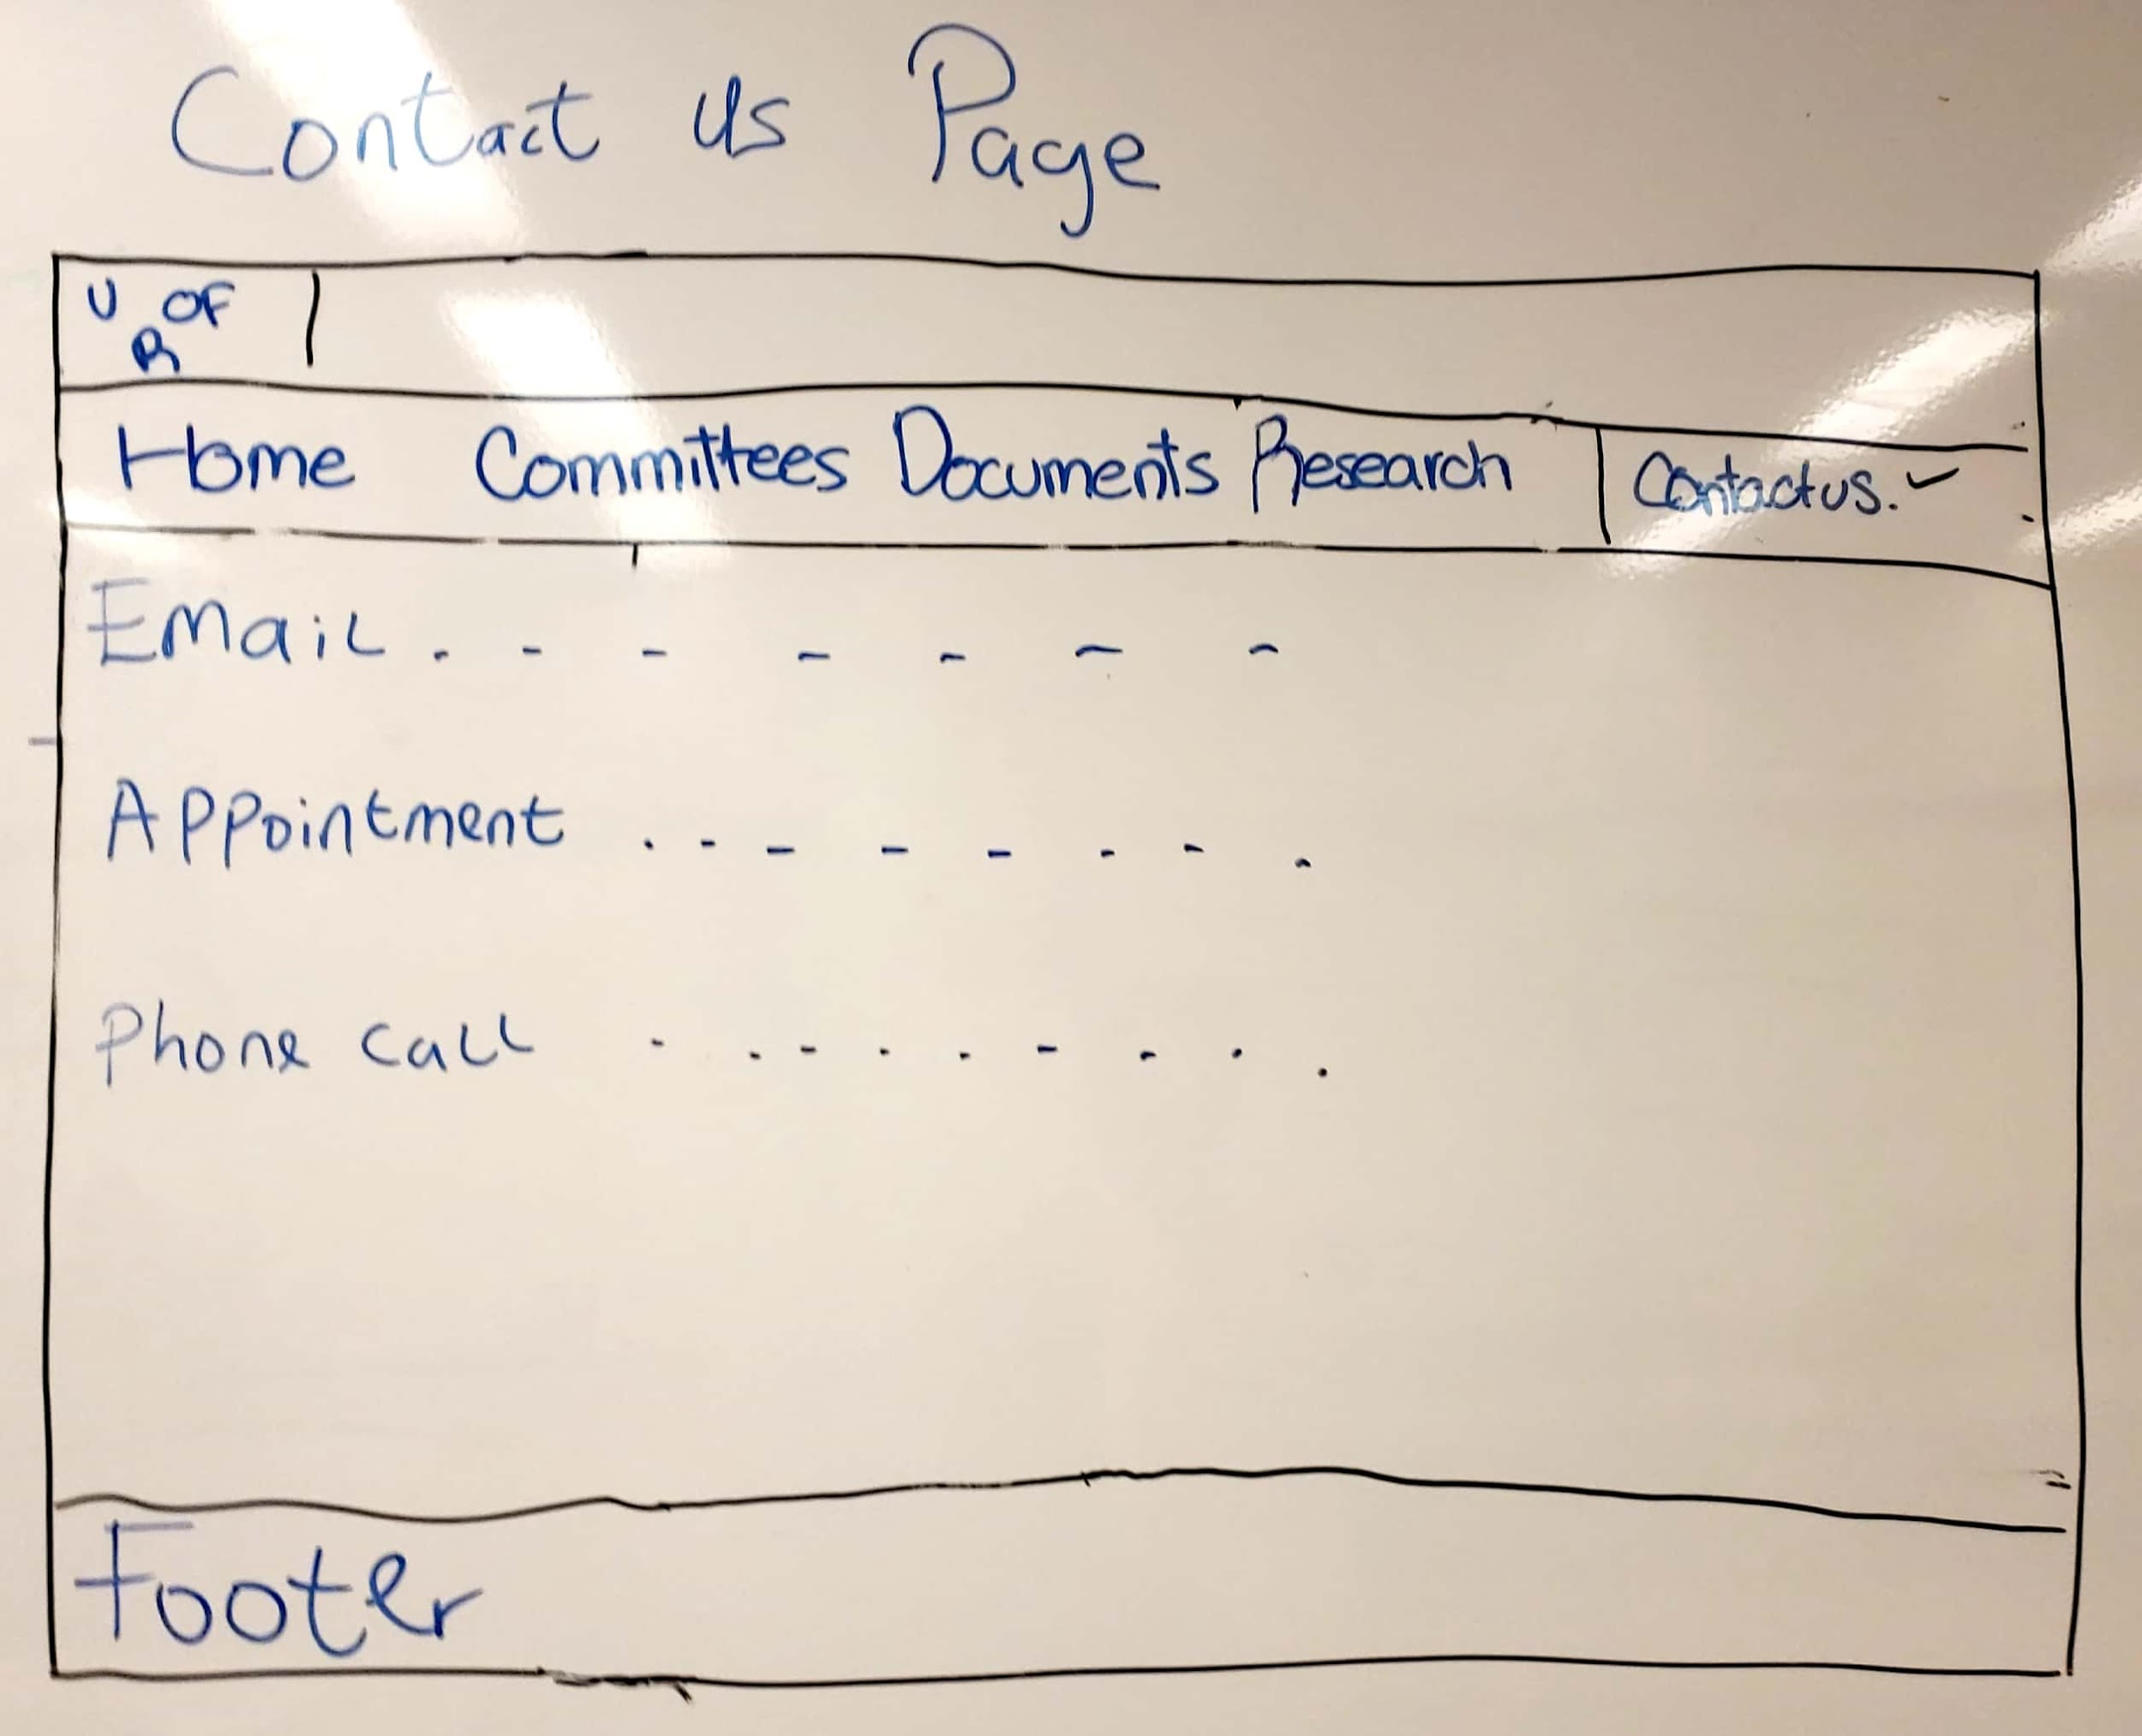 Contact us Page
U OF
R
Home Committees Documents Research Contact us.
Email . - - - - - -
Appointment . - - - - - - .
Phone call - . - . . - - . .
Footer